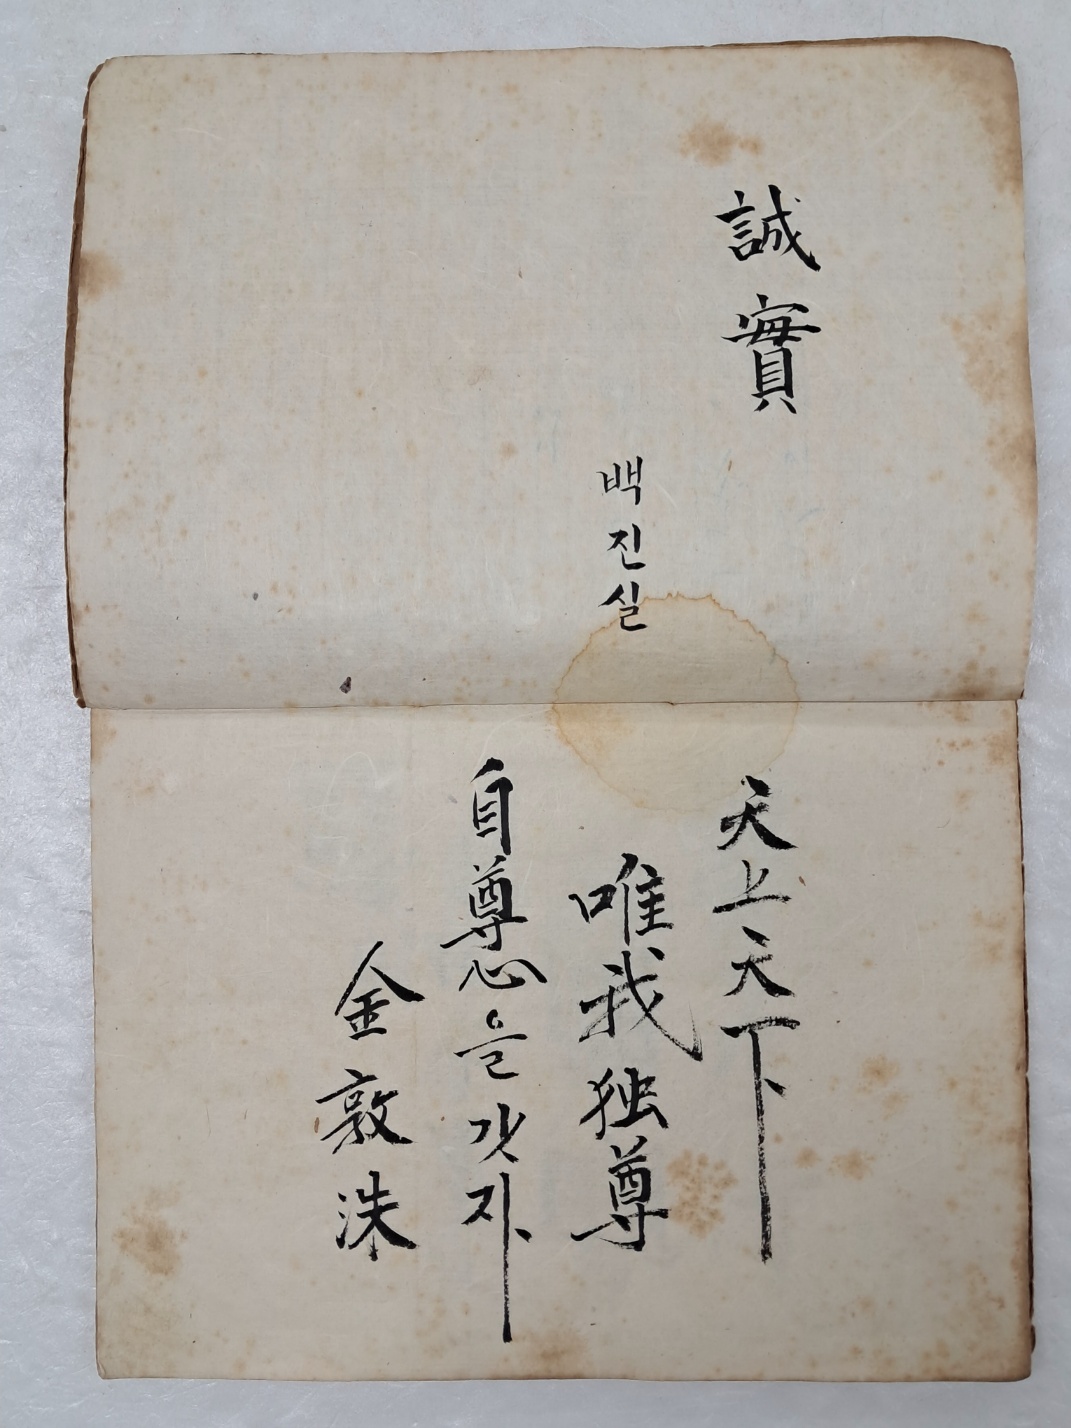 誠實
백진실
天上天下
唯我独尊
自尊心을갓자
金敦洙